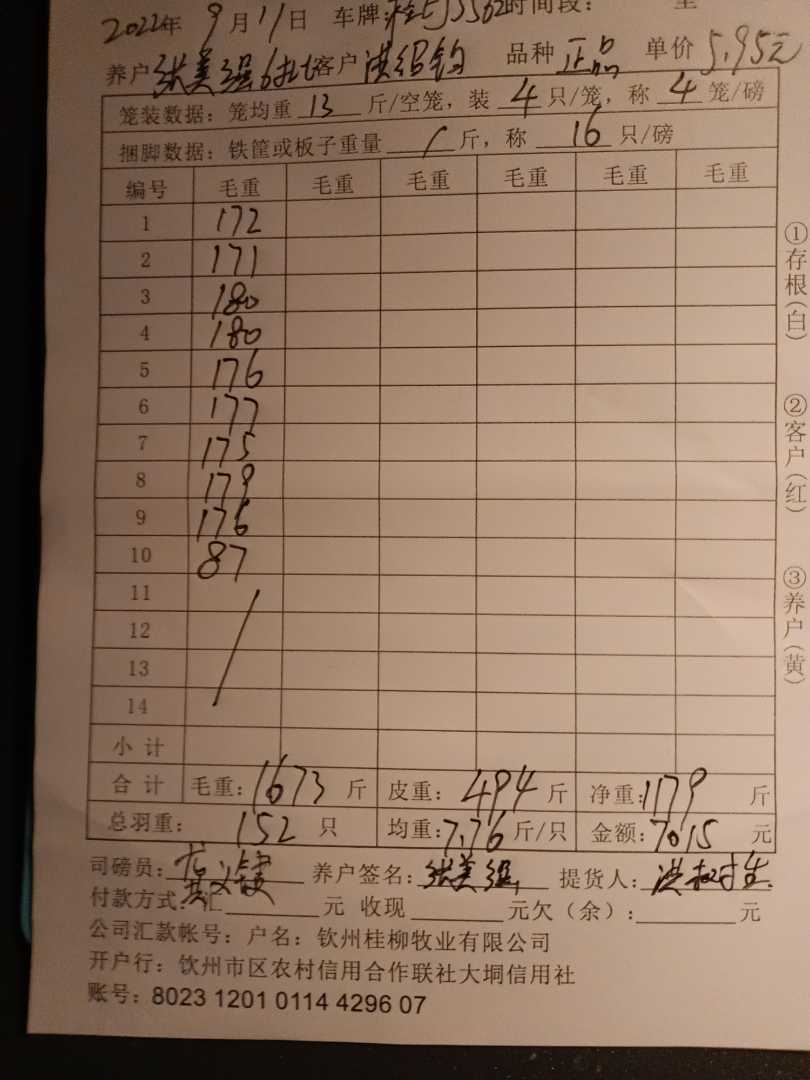 2022年 9月11日 车牌: 时间段: 至
养户 张美强6批 客户 洪绍钧 品种 正品 单价 5.95元
笼装数据: 笼均重 13 斤/空笼, 装 4 只/笼, 称 4 笼/磅
捆脚数据: 铁筐或板子重量 / 斤, 称 16 只/磅
编号 毛重 毛重 毛重 毛重 毛重 毛重
1 172
2 171
3 180
4 180
5 176
6 177
7 175
8 179
9 176
10 87
11
12
13
14
小计
合计 毛重: 1673 斤 皮重: 494 斤 净重: 1179 斤
总羽重: 152 只 均重: 7.76 斤/只 金额: 7015 元
司磅员: 养户签名: 张美强 提货人: 洪
付款方式: 汇 元 收现 元欠(余): 元
公司汇款帐号: 户名: 钦州桂柳牧业有限公司
开户行: 钦州市区农村信用合作联社大垌信用社
账号: 8023 1201 0114 4296 07
①存根(白)
②客户(红)
③养户(黄)